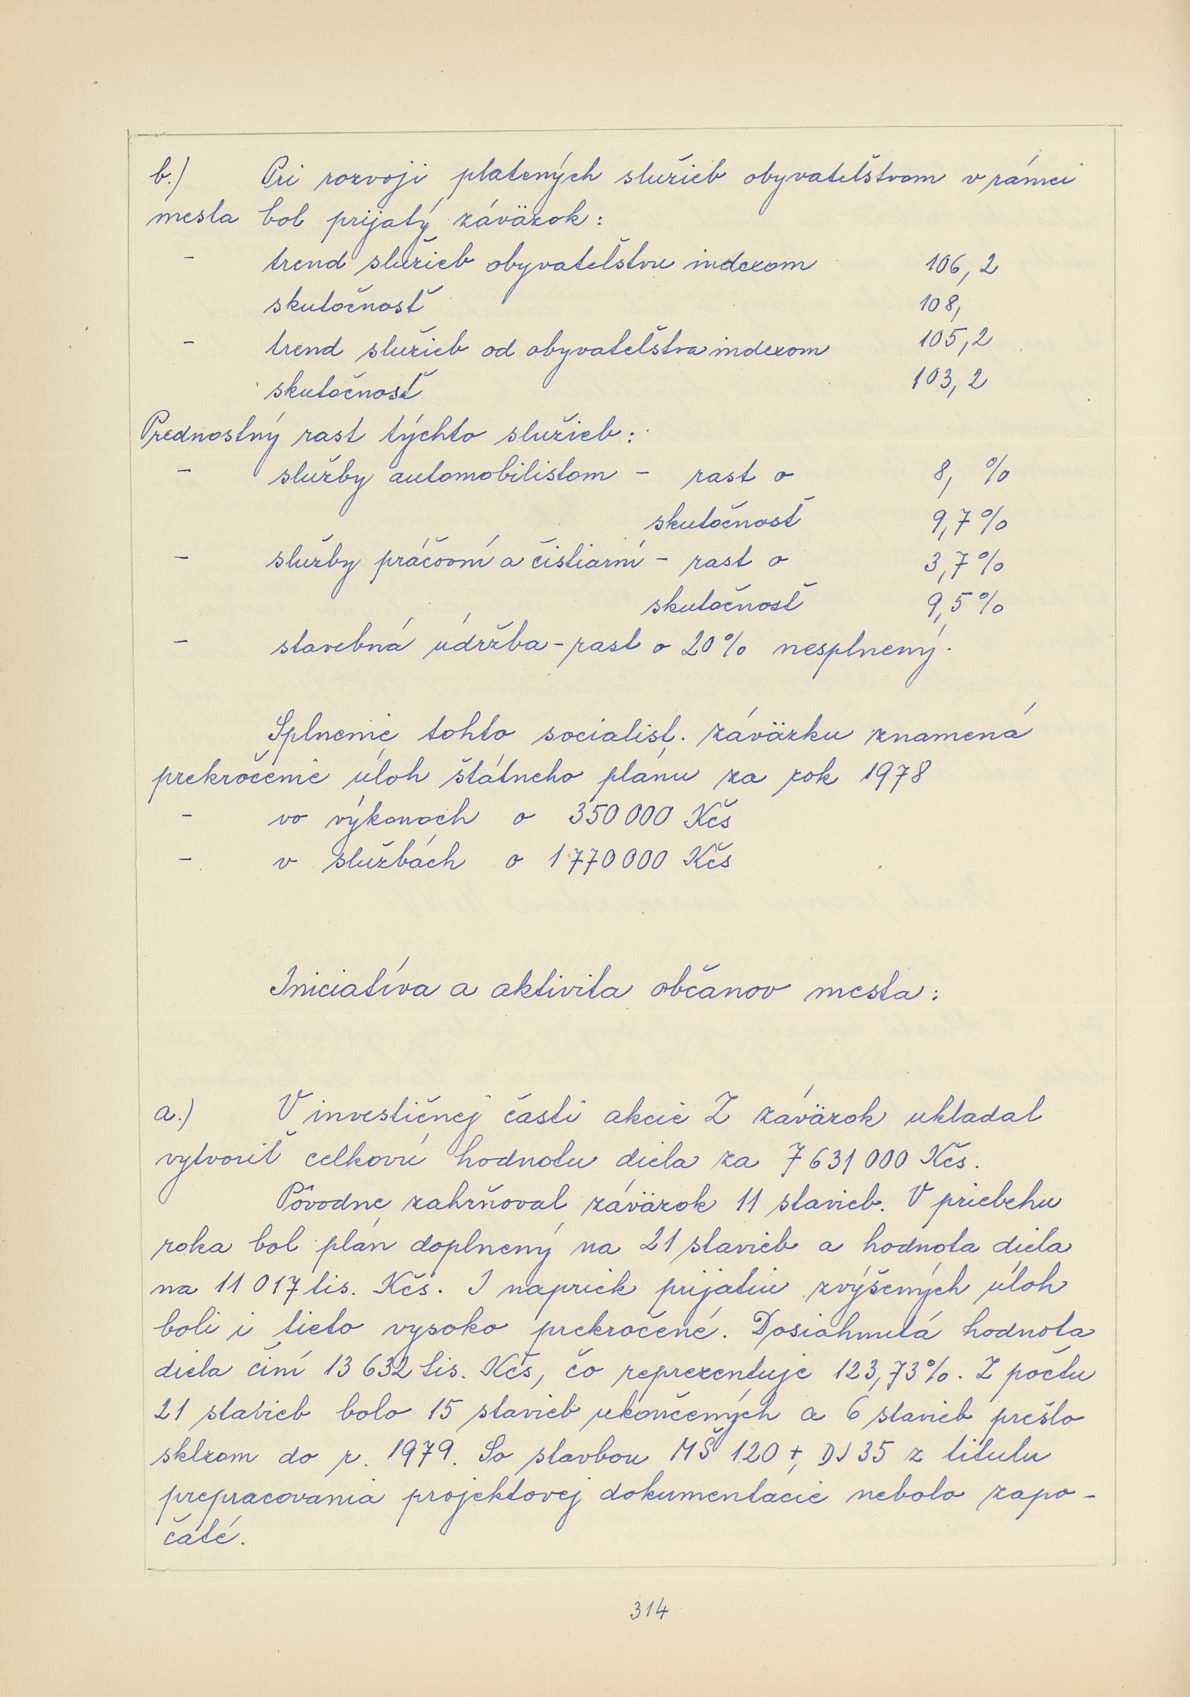 b.) Pri rozvoji platených služieb obyvateľstvom v rámci
mesta bol prijatý záväzok:
- trend služieb obyvateľstvu indexom 106,2
skutočnosť 108,
- trend služieb od obyvateľstva indexom 105,2
skutočnosť 103,2
Prednostný rast týchto služieb:
- služby automobilistom - rast o 8, %
skutočnosť 9,7%
- služby práčovní a čistiarní - rast o 3,7%
skutočnosť 9,5%
- stavebná údržba - rast o 20% nesplnený.
Splnenie tohto socialist. záväzku znamená
prekročenie úloh štátneho plánu za rok 1978
- vo výkonoch o 350 000 Kčs
- v službách o 1 770 000 Kčs
Iniciatíva a aktivita občanov mesta:
a.) V investičnej časti akcie Z záväzok ukladal
vytvoriť celkovú hodnotu diela za 7 631 000 Kčs.
Pôvodne zahrňoval záväzok 11 stavieb. V priebehu
roka bol plán doplnený na 21 stavieb a hodnota diela
na 11 017 tis. Kčs. I napriek prijatiu zvýšených úloh
boli i tieto vysoko prekročené. Dosiahnutá hodnota
diela činí 13 632 tis. Kčs, čo reprezentuje 123,73%. Z počtu
21 stavieb bolo 15 stavieb ukončených a 6 stavieb prešlo
sklzom do r. 1979. So stavbou MŠ 120 + DJ 35 z titulu
prepracovania projektovej dokumentacie nebolo zapo-
čaté.
314